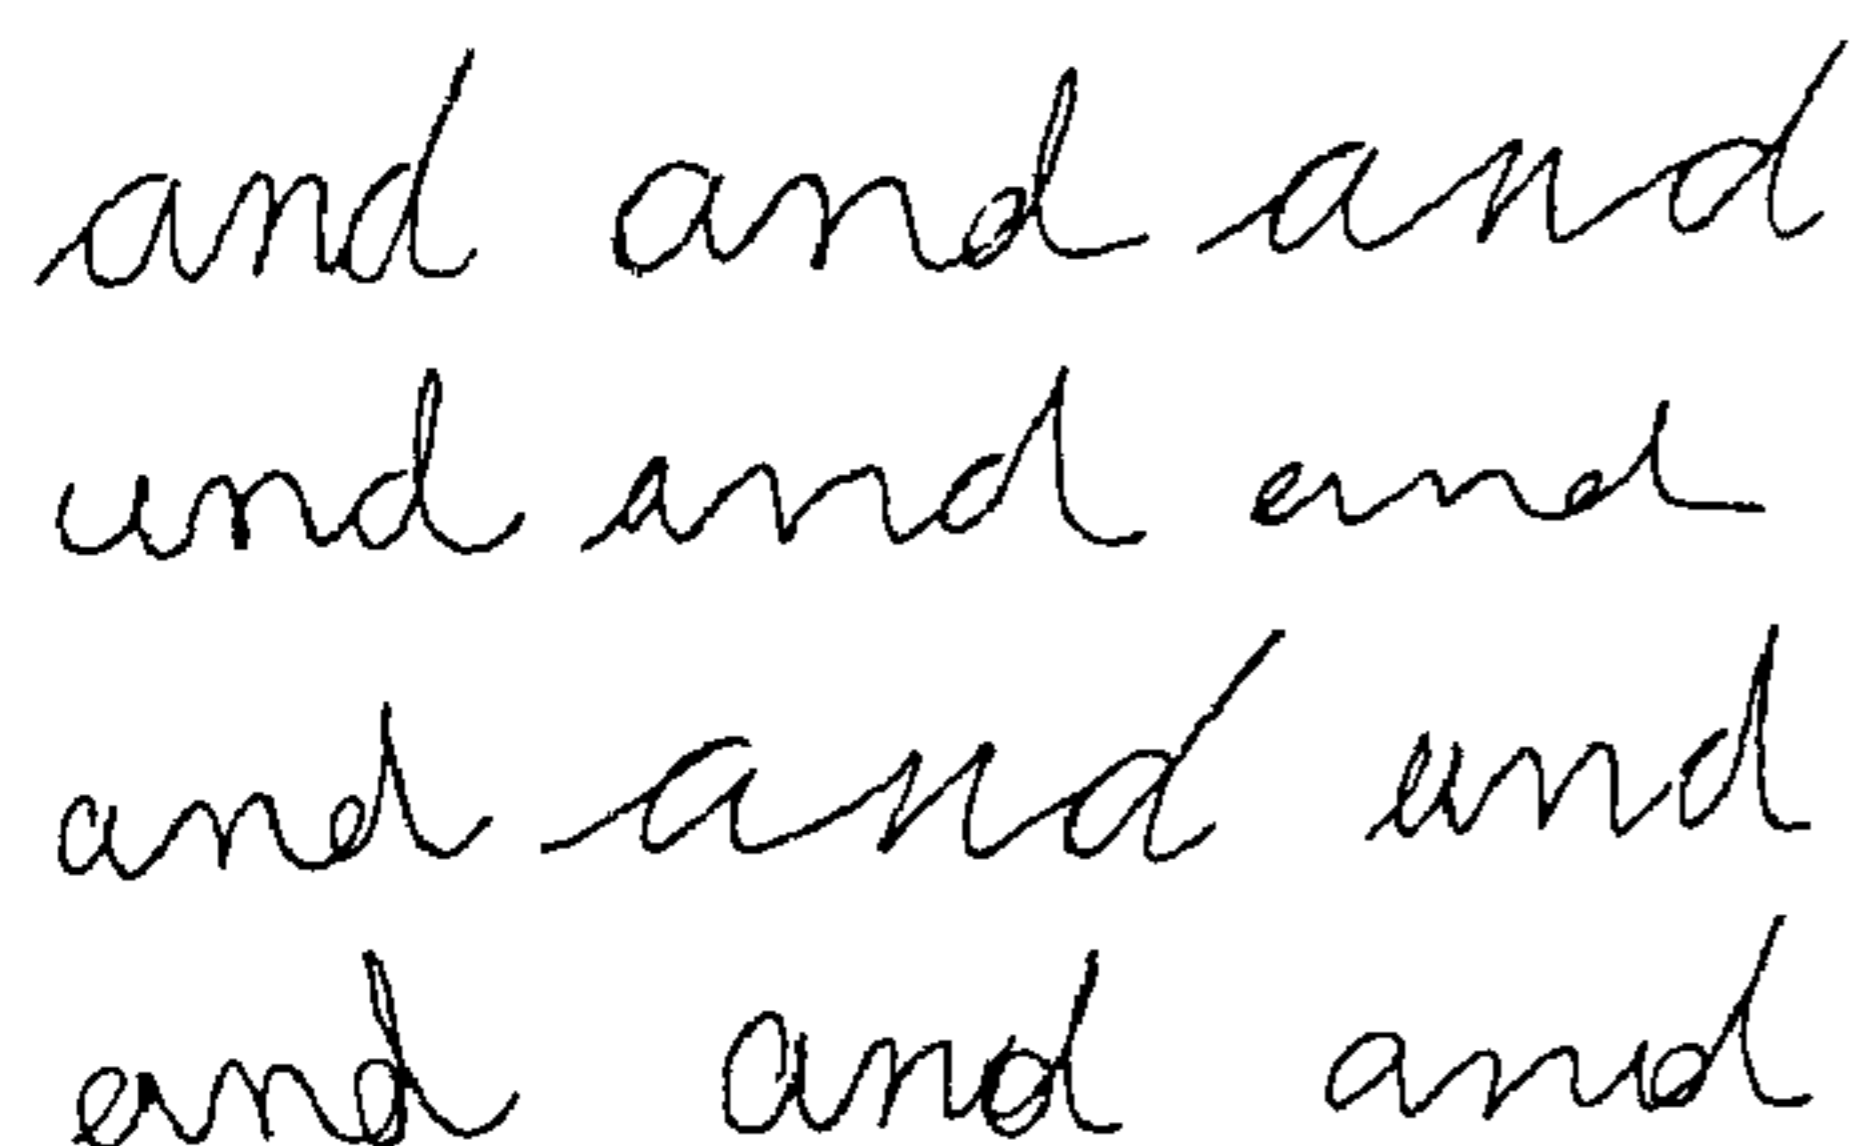 and and and
and and and
and and and
and and and